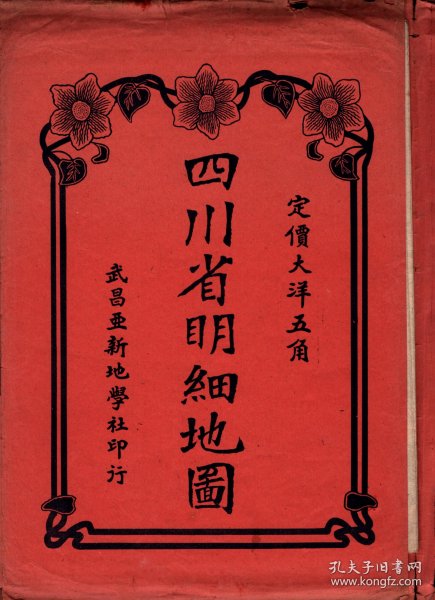 定價大洋五角
四川省明細地圖
武昌亜新地學社印行
孔夫子旧书网
www.kongfz.com